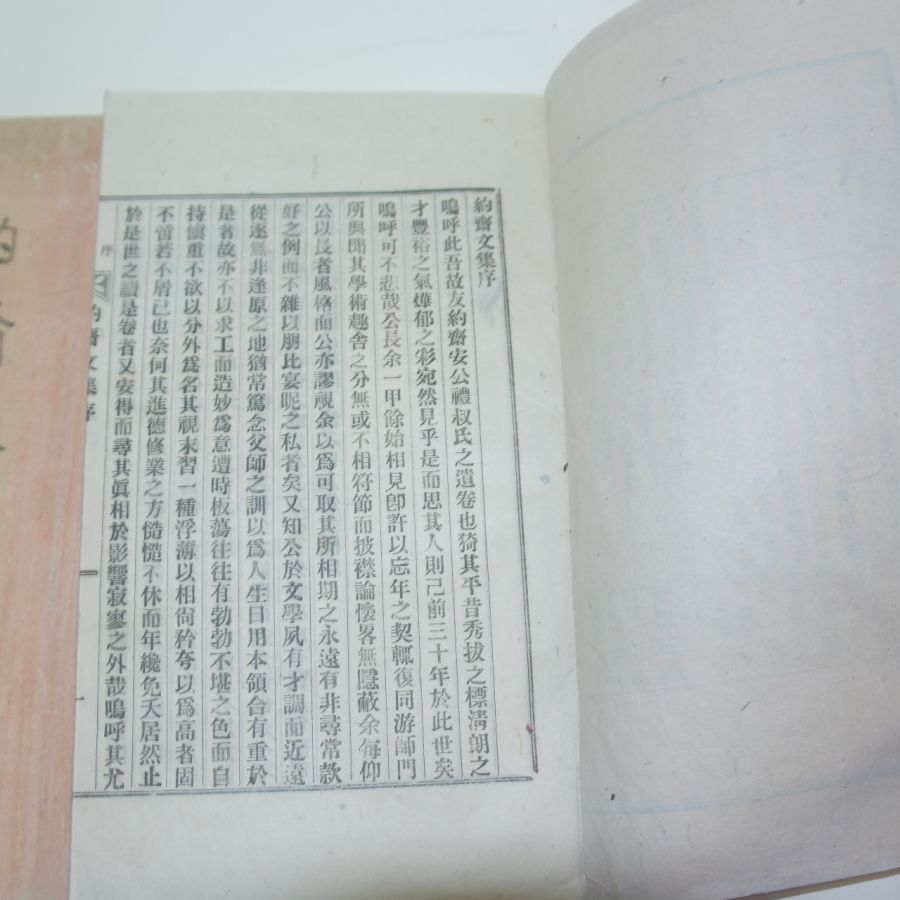 約齋文集序
嗚呼此吾故友約齋安公禮叔氏之遺卷也猗其平昔秀拔之標淸朗之
才豐裕之氣燁郁之彩宛然見乎是而思其人則已前三十年於此世矣
嗚呼可不悲哉公長余一甲餘始相見卽許以忘年之契輒復同游師門
所與聞其學術趣舍之分無或不相符節而披襟論懷畧無隱蔽余每仰
公以長者風格而公亦謬視余以爲可取其所相期之永遠有非尋常款
好之例而不雜以朋比宴昵之私者矣又知公於文學夙有才調而近遠
從逐無非逢原之地猶常篤念父師之訓以爲人生日用本領合有重於
是者故亦不以求工而造妙爲意遭時板蕩往往有勃勃不堪之色而自
持愼重不欲以分外爲名其視末習一種浮薄以相尙矜夸以爲高者固
不啻若不屑已也奈何其進德修業之方慥慥不休而年纔免夭居然止
於是世之讀是卷者又安得而尋其眞相於影響寂寥之外哉嗚呼其尤
序
約齋文集序
一